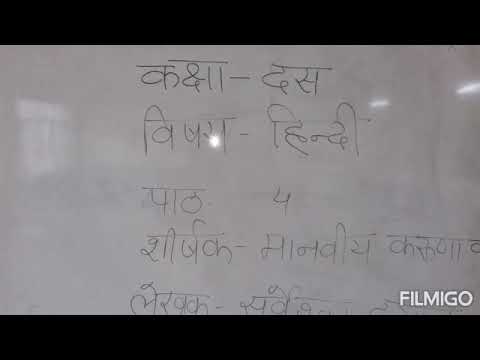 कक्षा - दस
विषय - हिन्दी
पाठ 4
शीर्षक - मानवीय करूणा
लेखक -
FILMIGO